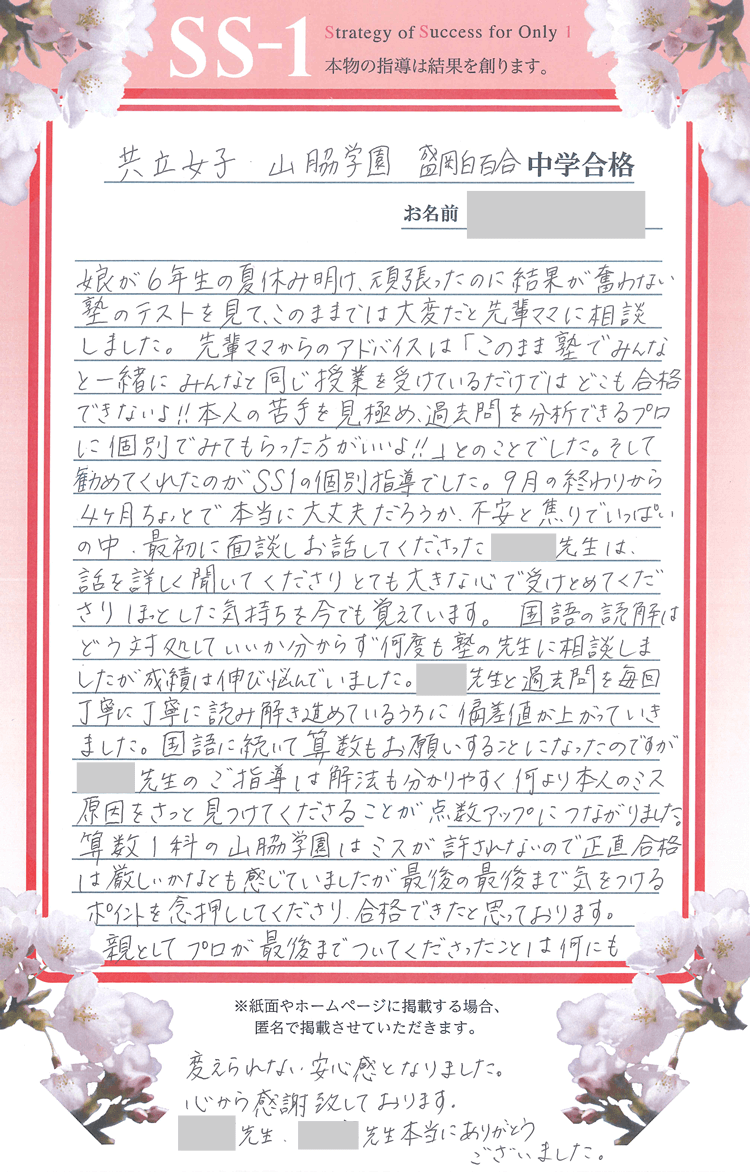 SS-1
Strategy of Success for Only 1
本物の指導は結果を創ります。
共立女子・山脇学園 盛岡白百合 中学合格
お名前
娘が6年生の夏休み明け、頑張ったのに結果が奮わない
塾のテストを見て、このままでは大変だと先輩ママに相談
しました。先輩ママからのアドバイスは「このまま塾でみんな
と一緒にみんなと同じ授業を受けているだけではどこも合格
できないよ!!本人の苦手を見極め、過去問を分析できるプロ
に個別でみてもらった方がいいよ!!」とのことでした。そして
勧めてくれたのがSS1の個別指導でした。9月の終わりから
4ヶ月ちょっとで本当に大丈夫だろうか、不安と焦りでいっぱい
の中、最初に面談しお話してくださった 先生は、
話を詳しく聞いてくださりとても大きな心で受けとめてくだ
さりほっとした気持ちを今でも覚えています。 国語の読解は
どう対処していいか分からず何度も塾の先生に相談しま
したが成績は伸び悩んでいました。 先生と過去問を毎回
丁寧に丁寧に読み解き進めているうちに偏差値が上がっていき
ました。国語に続いて算数もお願いすることになったのですが
先生のご指導は解法も分かりやすく何より本人のミス
原因をさっと見つけてくださることが点数アップにつながりました。
算数1科の山脇学園はミスが許されないので正直合格
は厳しいかなとも感じていましたが最後の最後まで気をつける
ポイントを念押ししてくださり、合格できたと思っております。
親としてプロが最後までついてくださったことは何にも
※紙面やホームページに掲載する場合、
匿名で掲載させていただきます。
変えられない安心感となりました。
心から感謝致しております。
先生、 先生本当にありがとう
ございました。